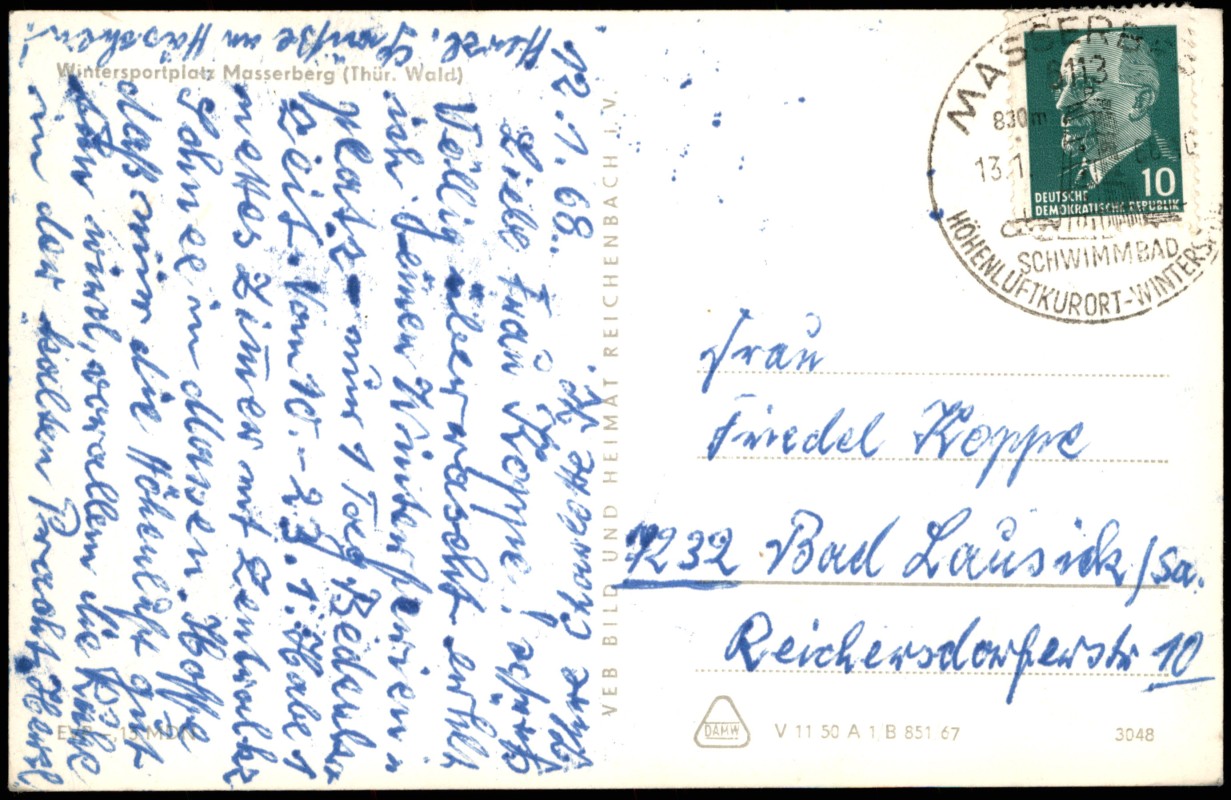 Wintersportplatz Masserberg (Thür. Wald)
12.1.68.
Liebe Frau Koppe!
Völlig überrascht erhielt
ich Winterferien
platz - nur 1 Tag Bedenk
zeit. Vom 10.-23.1. Habe 1
nettes Zimer mit Zentralhz
Schnee in Massen. Hoffe
daß mir die Höhenluft gut
tun wird, vor allem die Ruhe
in der kalten Pracht. Herzl
Herzl. Grüße an Häschen!
VEB BILD UND HEIMAT REICHENBACH I. V.
MASSERBERG
6113
830m
13.1.
SCHWIMMBAD
HÖHENLUFTKURORT-WINTERSPO
DEUTSCHE
DEMOKRATISCHE REPUBLIK
10
Frau
Friedel Koppe
7232 Bad Lausick/Sa.
Reichersdorferstr 10
EVP -,15 MDN
DAMW
V 11 50 A 1 B 851 67
3048